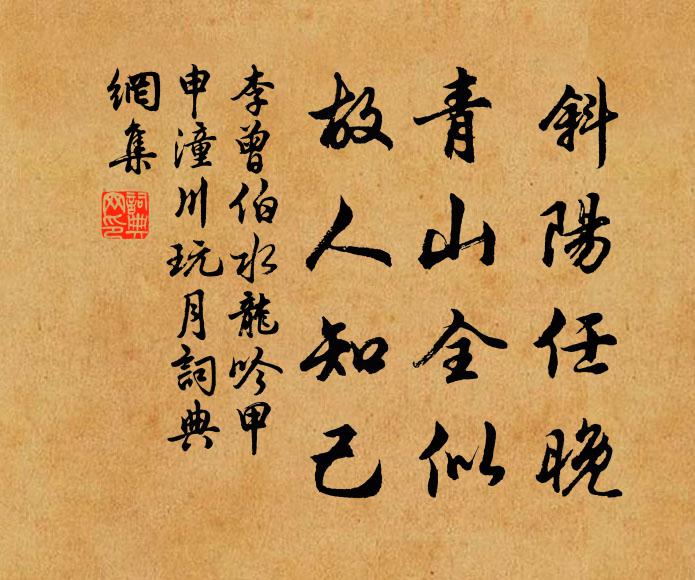 斜陽任晚
青山全似
故人知己
李曾伯水龍吟甲
申潼川玩月詞典
網集
詞典
網印